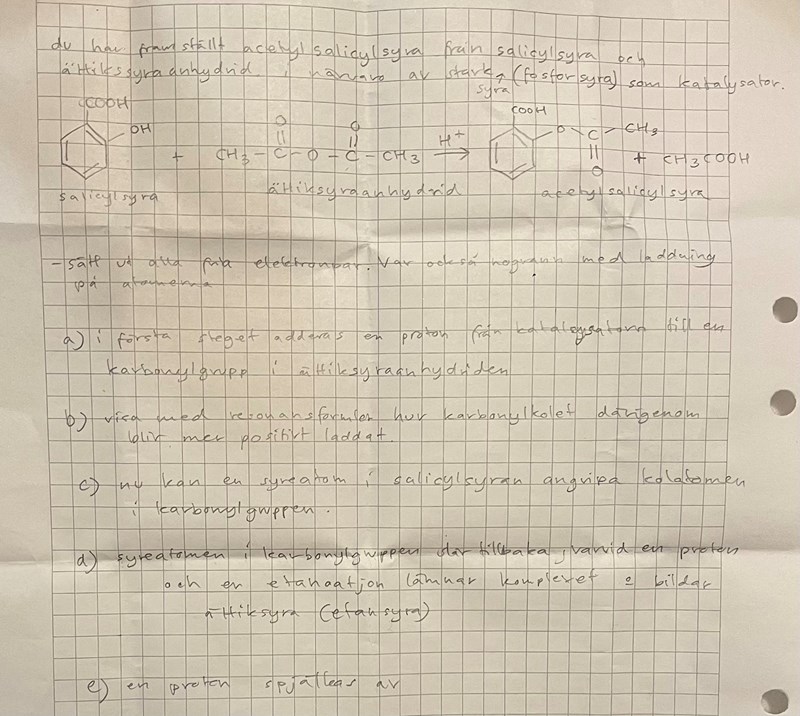 du har framställt acetylsalicylsyra från salicylsyra och
ättikssyraanhydrid i närvaro av stark syra (fosforsyra) som katalysator.
COOH
OH
+
CH₃ - C - O - C - CH₃
O
O
H⁺
COOH
O
C
CH₃
O
+ CH₃COOH
salicylsyra
ättiksyraanhydrid
acetylsalicylsyra
- sätt ut alla fria elektronpar. Var också noggrann med laddning
på atomerna
a) i första steget adderas en proton från katalysatorn till en
karbonylgrupp i ättiksyraanhydriden
b) visa med resonansformler hur karbonylkolet därigenom
blir mer positivt laddat.
c) nu kan en syreatom i salicylsyran angripa kolatomen
i karbonylgruppen.
d) syreatomen i karbonylgruppen där tillbaka, varvid en proton
och en etanoatjon lämnar komplexet o bildar
ättiksyra (etansyra)
e) en proton spjälkas av